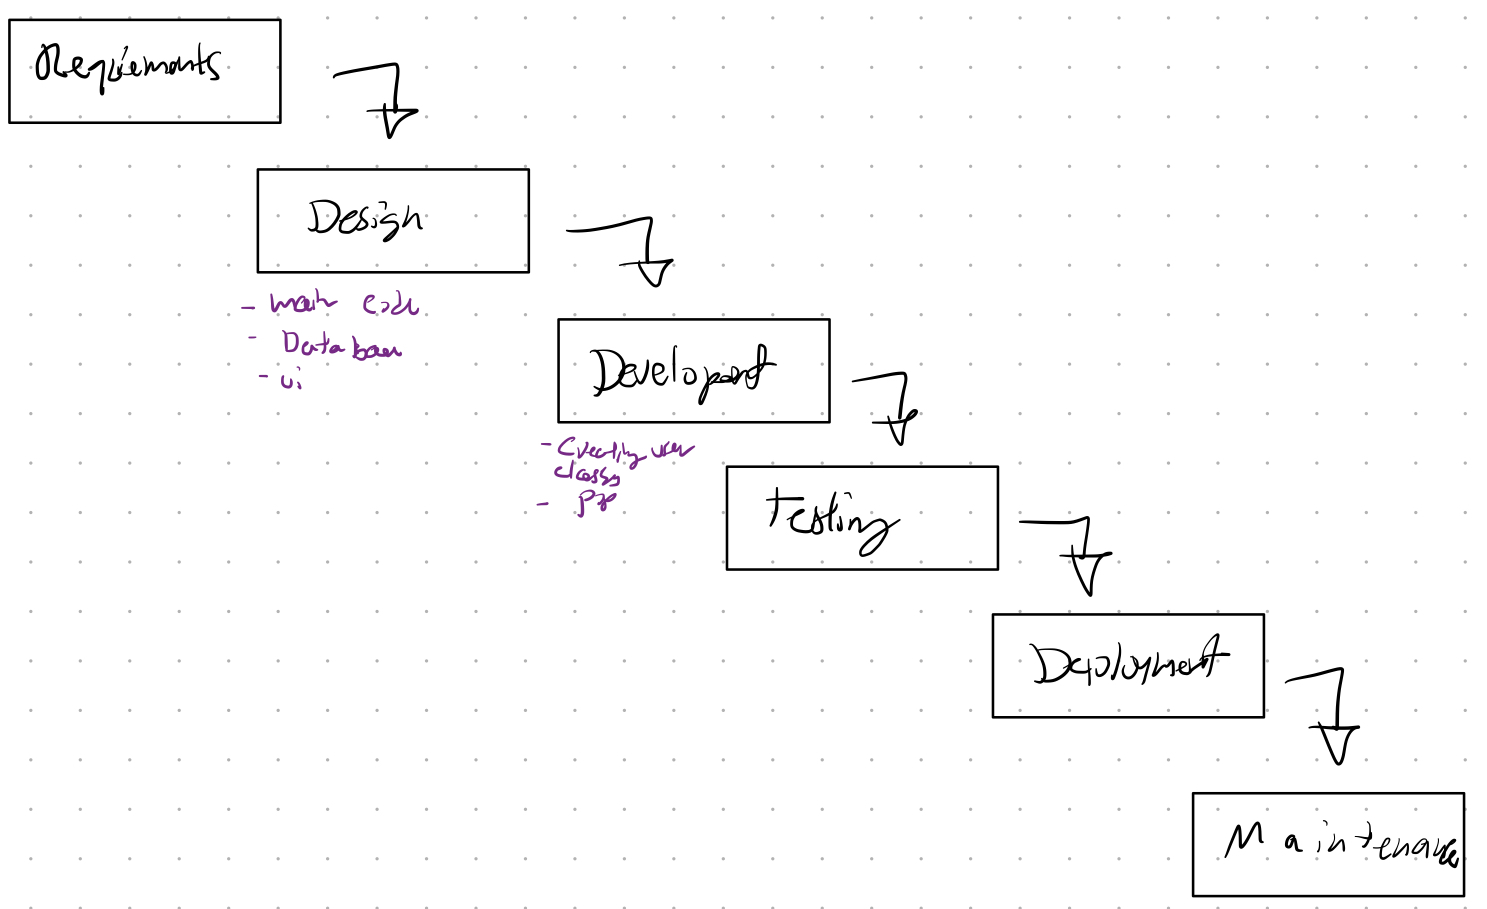 Requiements
Design
- main code
- Database
- ui
Develoment
- Creating user
classes
-
Testing
Deployment
Maintenance